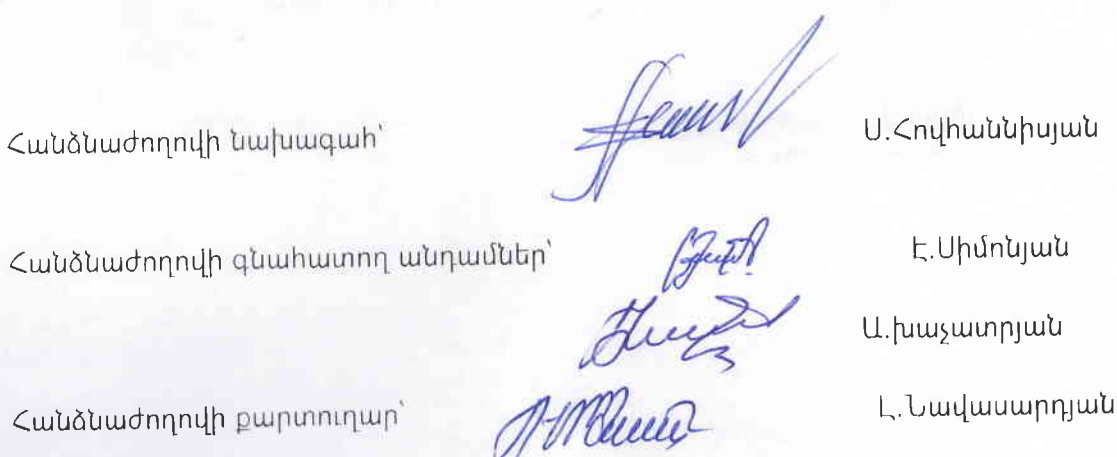 Հանձնաժողովի նախագահ՝ Ս.Հովհաննիսյան
Հանձնաժողովի գնահատող անդամներ՝ Է.Սիմոնյան
Ա.խաչատրյան
Հանձնաժողովի քարտուղար՝ Լ.Նավասարդյան